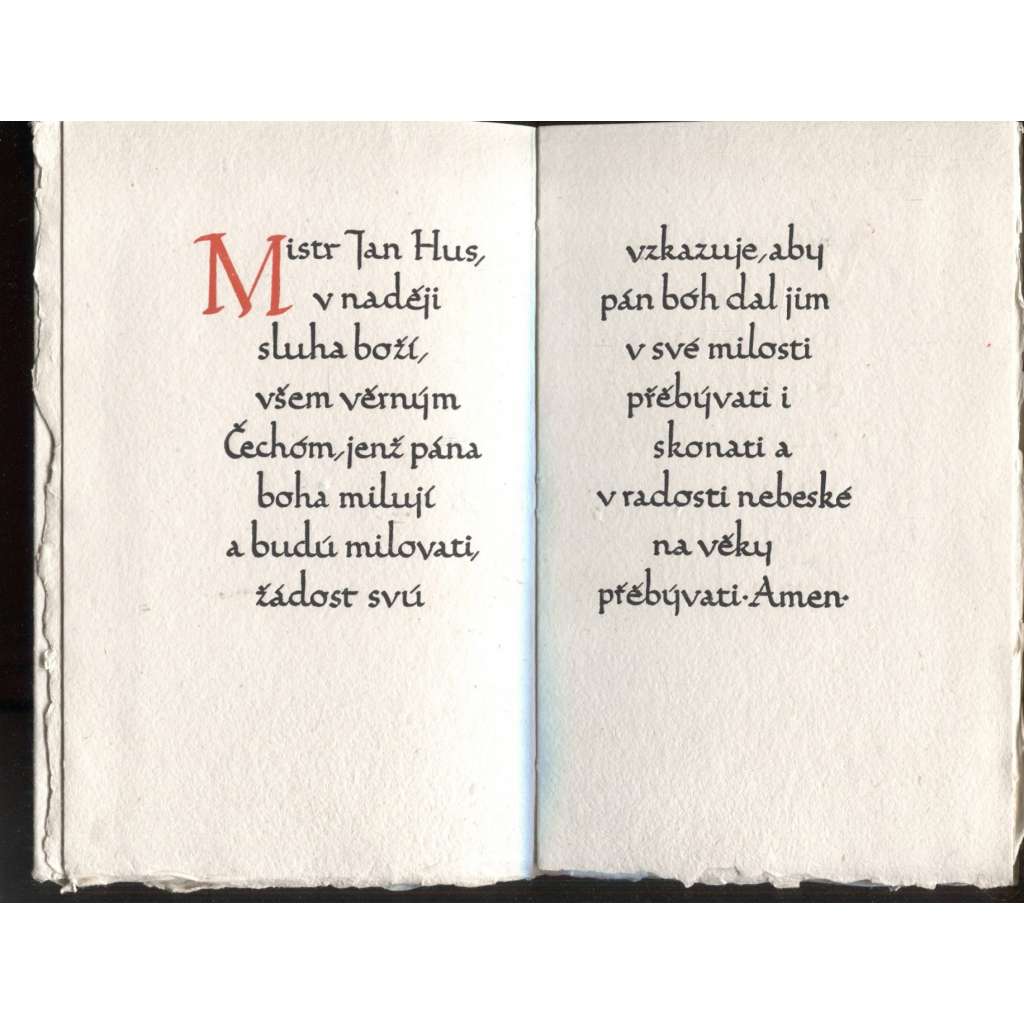 Mistr Jan Hus,
v naději
sluha boží,
všem věrným
Čechóm, jenž pána
boha milují
a budú milovati,
žádost svú
vzkazuje, aby
pán bóh dal jim
v své milosti
přěbývati i
skonati a
v radosti nebeské
na věky
přěbývati·Amen·